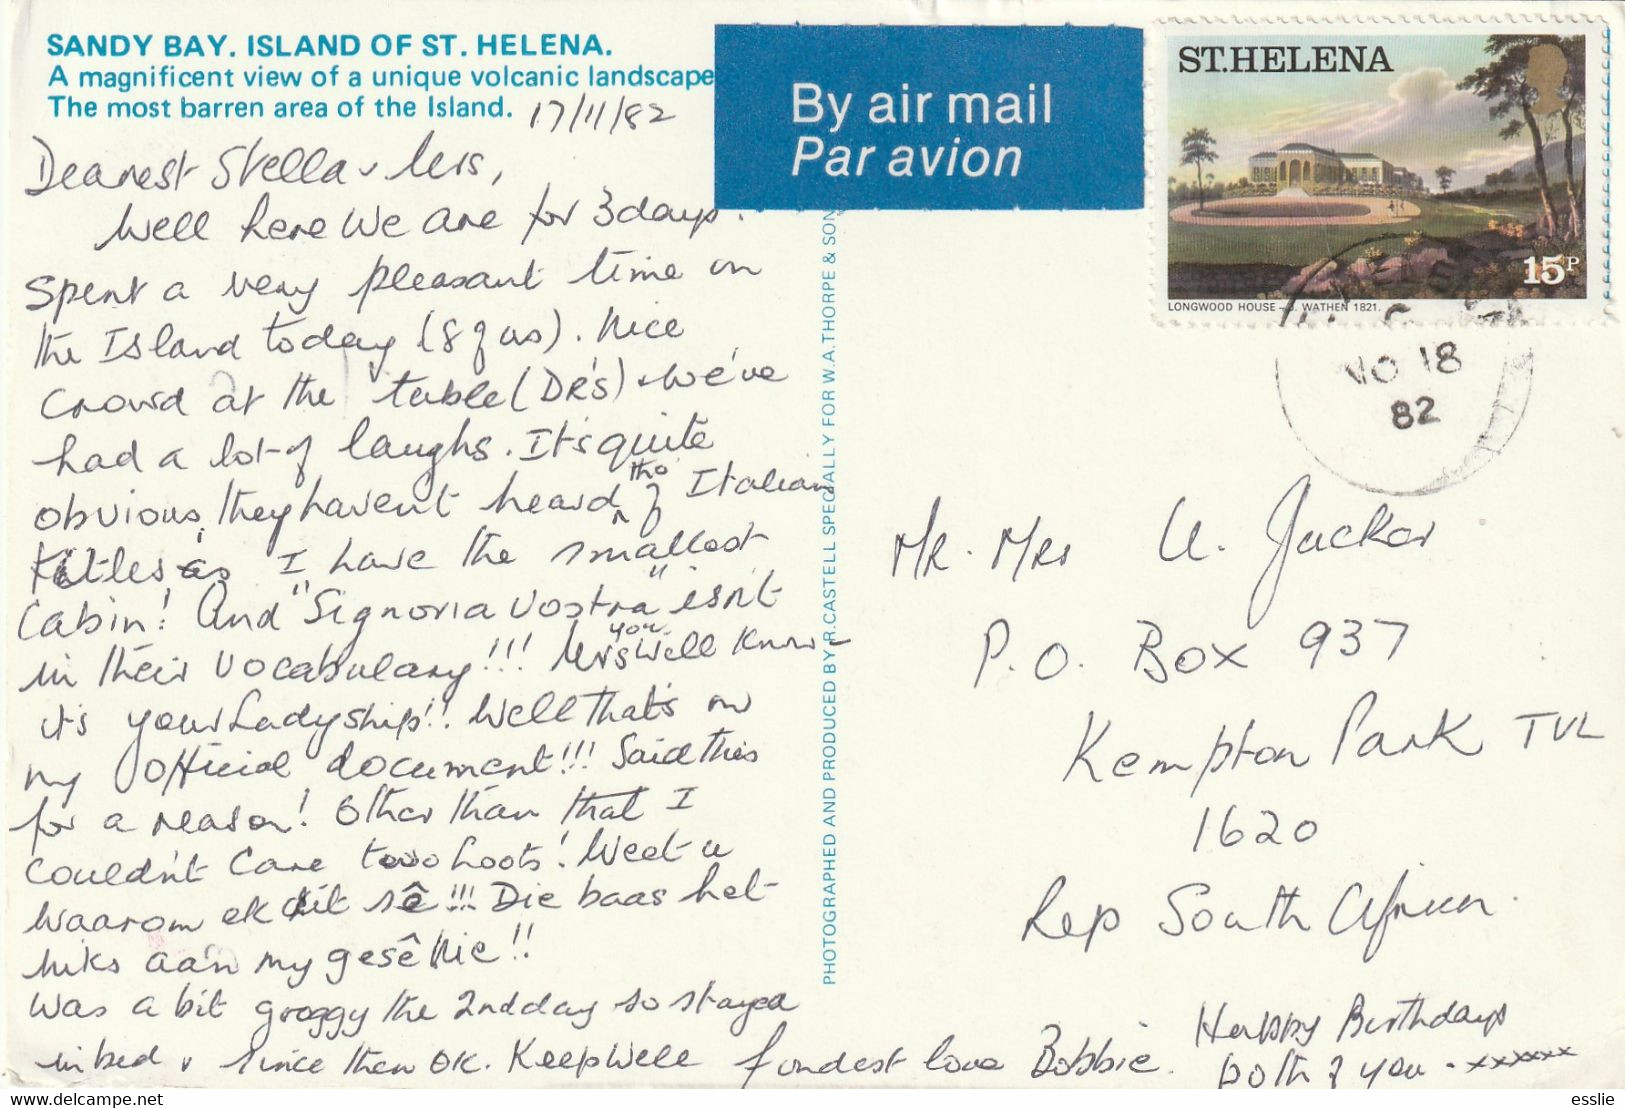 SANDY BAY. ISLAND OF ST. HELENA.
A magnificent view of a unique volcanic landscape
The most barren area of the Island.
17/11/82
Dearest Stella &
Well here we are for 3 days.
Spent a very pleasant time on
the Island today (8 of us). Nice
crowd at the table (DR's) & we've
had a lot of laughs. It's quite
obvious they haven't heard tho of Italian
titles as I have the smallest
cabin! And "Signoria Vostra" isn't
in their vocabulary!!! you will know
it's your Ladyship!! Well that's on
my official document!!! Said this
for a reason! Other than that I
couldn't care two hoots! Weet u
waarom ek dit sê!!! Die baas het
niks aan my gesê nie!!
Was a bit groggy the 2nd day so stayed
in bed & since then OK. Keep well fondest love Bobbie.
Happy Birthdays
both of you - xxxxxx
By air mail
Par avion
ST.HELENA
15P
LONGWOOD HOUSE - J. WATHEN 1821.
NO 18
82
PHOTOGRAPHED AND PRODUCED BY R.CASTELL SPECIALLY FOR W.A.THORPE & SON
Mr. Mrs U. Jucker
P.O. Box 937
Kempton Park TVL
1620
Rep South Africa.
esslie